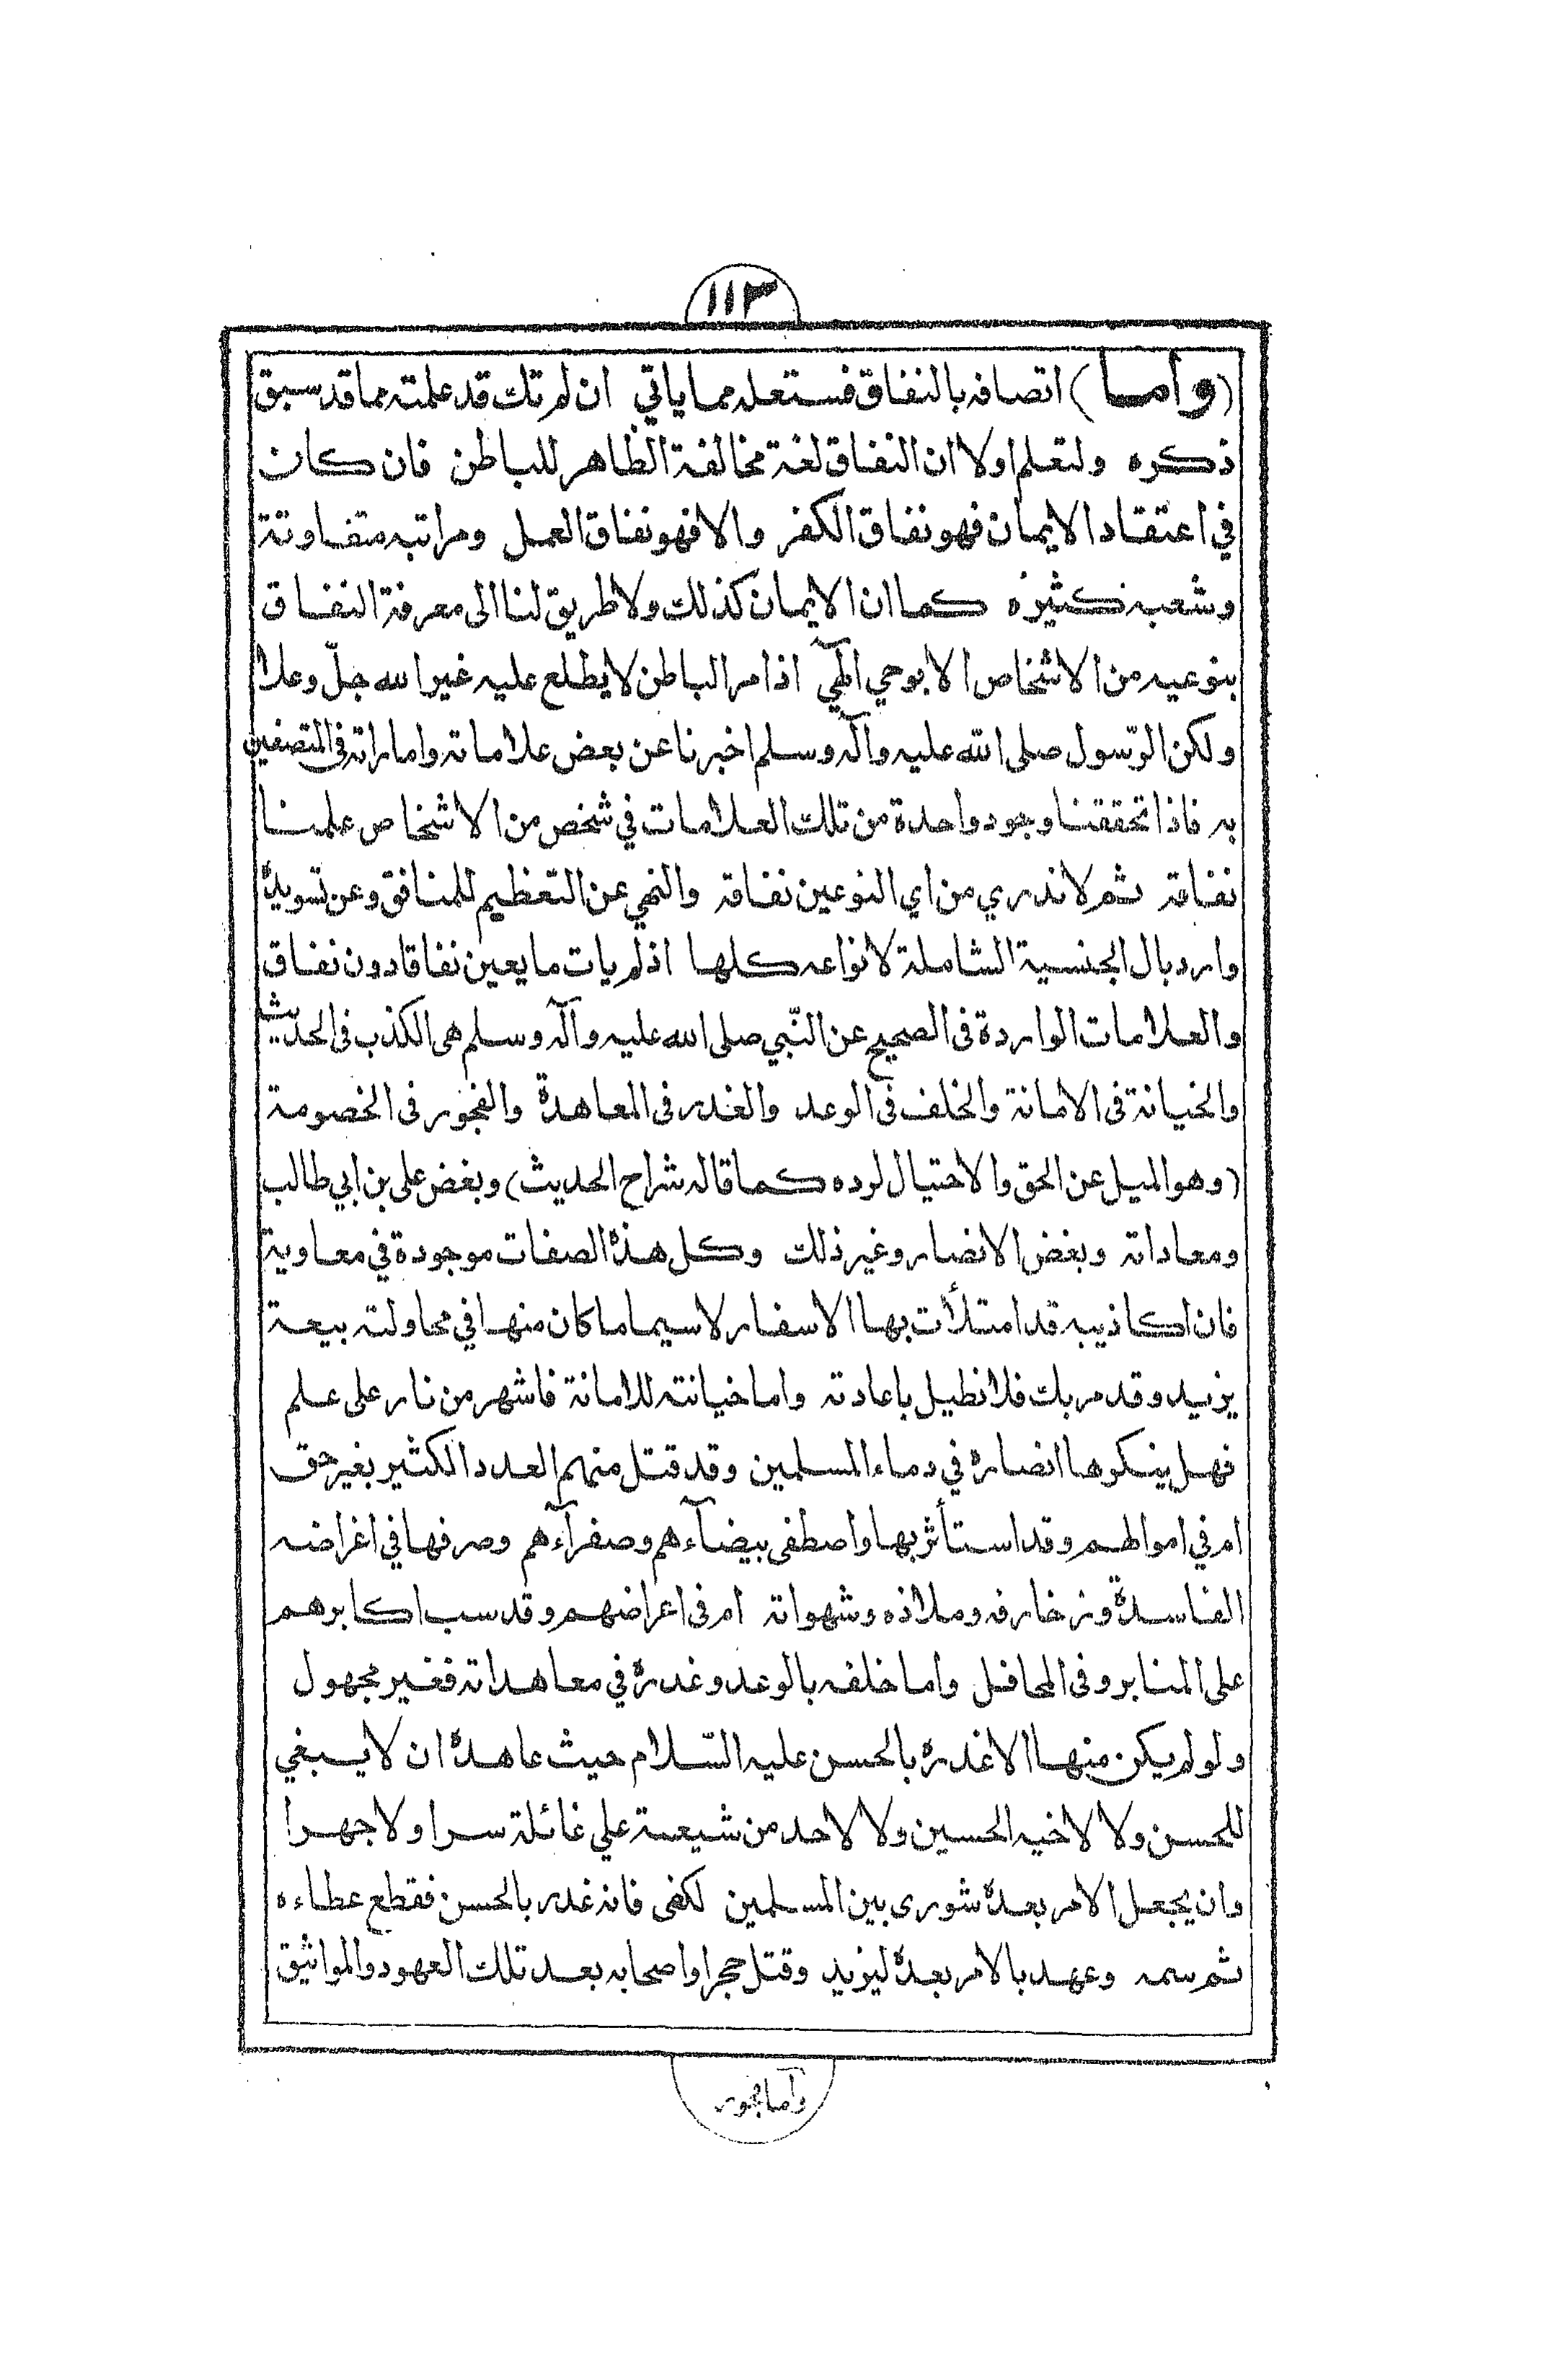 ١١٣
(وأما) اتصافه بالنفاق فستعلمه مما ياتي ان لم تك قد علمته مما قد سبق
ذكره ولتعلم اولا ان النفاق لغة مخالفة الظاهر للباطن فان كان
في اعتقاد الايمان فهو نفاق الكفر والا فهو نفاق العمل ومراتبه متفاوتة
وشعبه كثيرة كما ان الايمان كذلك ولا طريق لنا الى معرفة النفاق
بنوعيه من الاشخاص الا بوحي الٓهي اذ امر الباطن لا يطلع عليه غير الله جلّ وعلا
ولكن الرّسول صلى الله عليه وآله وسلم اخبرنا عن بعض علاماته واماراته في المتصفين
به فاذا تحققنا وجود واحدة من تلك العلامات في شخص من الاشخاص علمنا
نفاقه ثم لا ندري من اي النوعين نفاقه والنهي عن التعظيم للمنافق وعن تسويده
وارد بال الجنسية الشاملة لانواعه كلها اذ لم يات ما يعين نفاقا دون نفاق
والعلامات الواردة فى الصحيح عن النّبي صلى الله عليه وآله وسلم هى الكذب فى الحديث
والخيانة فى الامانة والخلف فى الوعد والغدر فى المعاهدة والفجور فى الخصومة
(وهو الميل عن الحق والاحتيال لرده كما قاله شراح الحديث) وبغض على بن ابي طالب
ومعاداته وبغض الانصار وغير ذلك وكل هذه الصفات موجودة في معاوية
فان اكاذيبه قد امتلأت بها الاسفار لا سيما ما كان منها في محاولته بيعة
يزيد وقد مر بك فلا نطيل باعادته واما خيانته للامانة فاشهر من نار على علم
فهل ينكرها انصاره في دماء المسلمين وقد قتل منهم العدد الكثير بغير حق
ام في اموالهم وقد استأثر بها واصطفى بيضآءهم وصفرآءهم وصرفها في اغراضه
الفاسدة وزخارفه وملاذه وشهواته ام فى اعراضهم وقد سب اكابرهم
على المنابر وفى المحافل واما خلفه بالوعد وغدره في معاهداته فغير مجهول
ولو لم يكن منها الا غدره بالحسن عليه السّلام حيث عاهده ان لا يبغي
للحسن ولا لاخيه الحسين ولا لاحد من شيعة علي غائلة سرا ولا جهرا
وان يجعل الامر بعده شورى بين المسلمين لكفى فانه غدر بالحسن فقطع عطاءه
ثم سمه وعهد بالامر بعده ليزيد وقتل حجرا واصحابه بعد تلك العهود والمواثيق
وأما فجوره